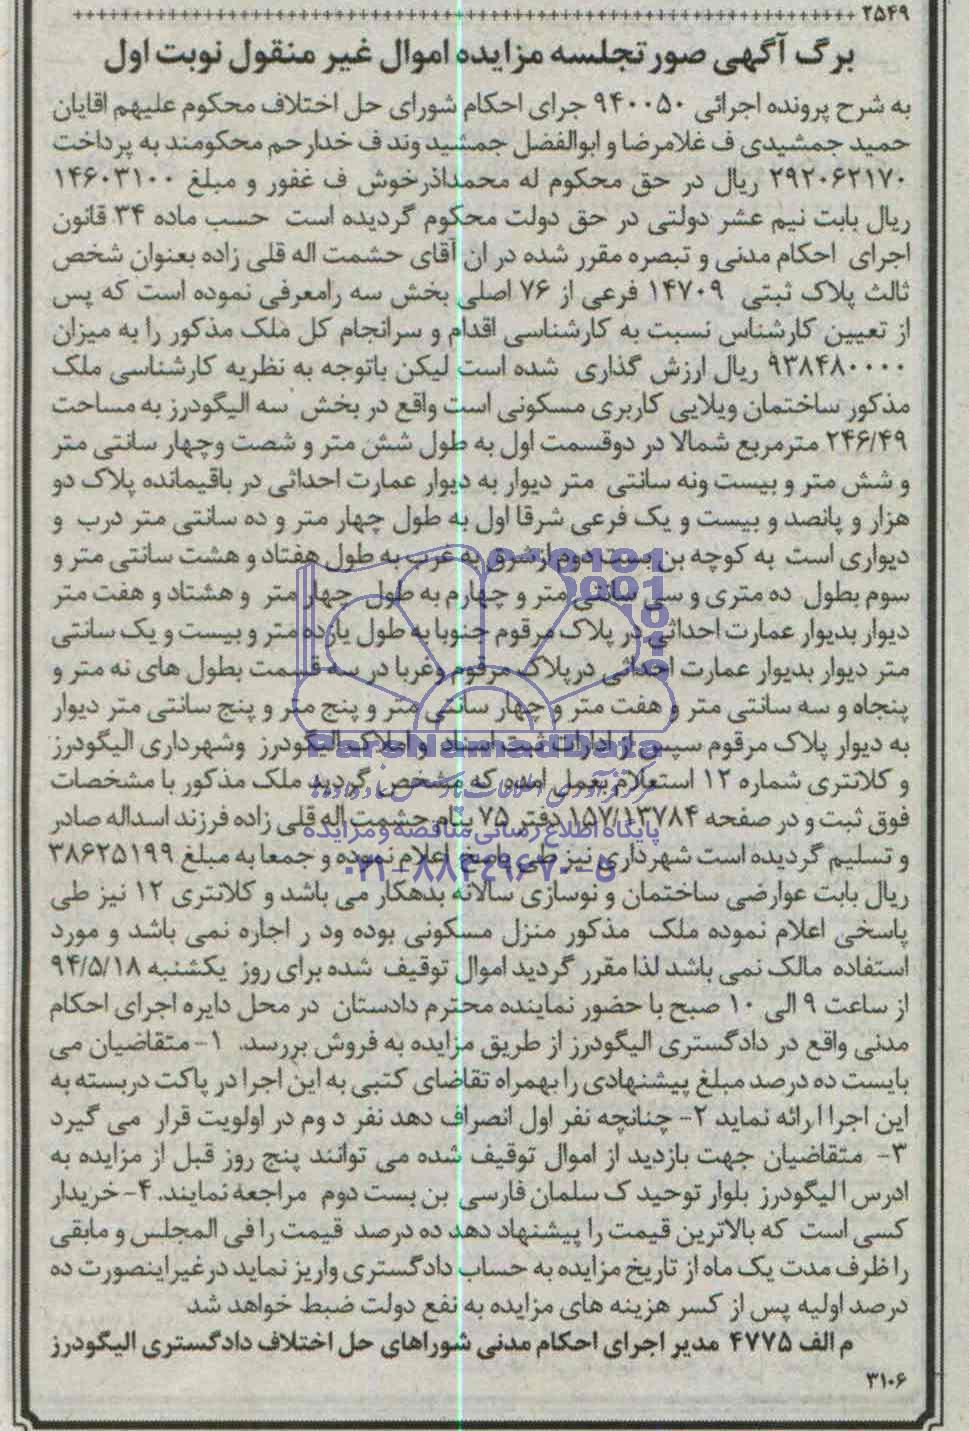 ۲۵۴۹ ++++++++++++++++++++++++++++++++++++++++++++++++
برگ آگهی صورتجلسه مزایده اموال غیر منقول نوبت اول
به شرح پرونده اجرائی ۹۴۰۰۵۰ جرای احکام شورای حل اختلاف محکوم علیهم اقایان
حمید جمشیدی ف غلامرضا و ابوالفضل جمشید وند ف خدارحم محکومند به پرداخت
۲۹۲۰۶۲۱۷۰ ریال در حق محکوم له محمداذرخوش ف غفور و مبلغ ۱۴۶۰۳۱۰۰
ریال بابت نیم عشر دولتی در حق دولت محکوم گردیده است حسب ماده ۳۴ قانون
اجرای احکام مدنی و تبصره مقرر شده در ان آقای حشمت اله قلی زاده بعنوان شخص
ثالث پلاک ثبتی ۱۴۷۰۹ فرعی از ۷۶ اصلی بخش سه رامعرفی نموده است که پس
از تعیین کارشناس نسبت به کارشناسی اقدام و سرانجام کل ملک مذکور را به میزان
۹۳۸۴۸۰۰۰۰ ریال ارزش گذاری شده است لیکن باتوجه به نظریه کارشناسی ملک
مذکور ساختمان ویلایی کاربری مسکونی است واقع در بخش سه الیگودرز به مساحت
۲۴۶/۴۹ مترمربع شمالا در دوقسمت اول به طول شش متر و شصت وچهار سانتی متر
و شش متر و بیست ونه سانتی متر دیوار به دیوار عمارت احداثی در باقیمانده پلاک دو
هزار و پانصد و بیست و یک فرعی شرقا اول به طول چهار متر و ده سانتی متر درب و
دیواری است به کوچه بن بست دوم ازشرق به غرب به طول هفتاد و هشت سانتی متر و
سوم بطول ده متری و سی سانتی متر و چهارم به طول چهار متر و هشتاد و هفت متر
دیوار بدیوار عمارت احداثی در پلاک مرقوم جنوبا به طول یازده متر و بیست و یک سانتی
متر دیوار بدیوار عمارت احداثی درپلاک مرقوم وغربا در سه قسمت بطول های نه متر و
پنجاه و سه سانتی متر و هفت متر و چهار سانتی متر و پنج متر و پنج سانتی متر دیوار
به دیوار پلاک مرقوم سپس از ادارات ثبت اسناد و املاک الیگودرز وشهرداری الیگودرز
و کلانتری شماره ۱۲ استعلام بعمل امده که مشخص گردید ملک مذکور با مشخصات
فوق ثبت و در صفحه ۱۵۷/۱۳۷۸۴ دفتر ۷۵ بنام حشمت اله قلی زاده فرزند اسداله صادر
و تسلیم گردیده است شهرداری نیز طی پاسخ اعلام نموده و جمعا به مبلغ ۳۸۶۲۵۱۹۹
ریال بابت عوارضی ساختمان و نوسازی سالانه بدهکار می باشد و کلانتری ۱۲ نیز طی
پاسخی اعلام نموده ملک مذکور منزل مسکونی بوده ود ر اجاره نمی باشد و مورد
استفاده مالک نمی باشد لذا مقرر گردید اموال توقیف شده برای روز یکشنبه ۹۴/۵/۱۸
از ساعت ۹ الی ۱۰ صبح با حضور نماینده محترم دادستان در محل دایره اجرای احکام
مدنی واقع در دادگستری الیگودرز از طریق مزایده به فروش بررسد. ۱- متقاضیان می
بایست ده درصد مبلغ پیشنهادی را بهمراه تقاضای کتبی به این اجرا در پاکت دربسته به
این اجرا ارائه نماید ۲- چنانچه نفر اول انصراف دهد نفر د وم در اولویت قرار می گیرد
۳- متقاضیان جهت بازدید از اموال توقیف شده می توانند پنج روز قبل از مزایده به
ادرس الیگودرز بلوار توحید ک سلمان فارسی بن بست دوم مراجعه نمایند. ۴- خریدار
کسی است که بالاترین قیمت را پیشنهاد دهد ده درصد قیمت را فی المجلس و مابقی
را ظرف مدت یک ماه از تاریخ مزایده به حساب دادگستری واریز نماید درغیراینصورت ده
درصد اولیه پس از کسر هزینه های مزایده به نفع دولت ضبط خواهد شد
م الف ۴۷۷۵ مدیر اجرای احکام مدنی شوراهای حل اختلاف دادگستری الیگودرز
۳۱۰۶
ParsNamadData
پایگاه اطلاع رسانی مناقصه و مزایده
۰۲۱-۸۸۳۴۹۶۷۰-۵